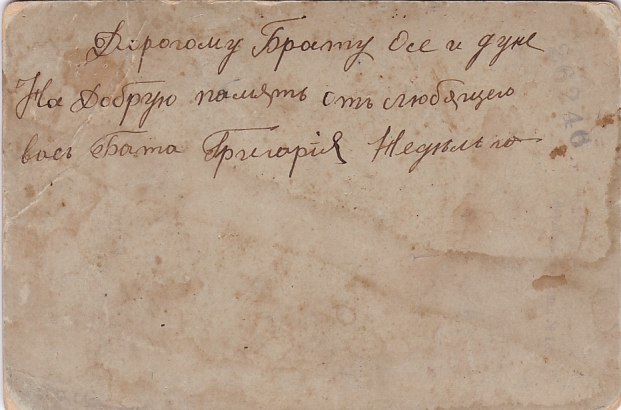 Дорогому Брату Осе и дуне
На Добрую память отъ любящего
васъ Бата Григария Недѣлько
36246